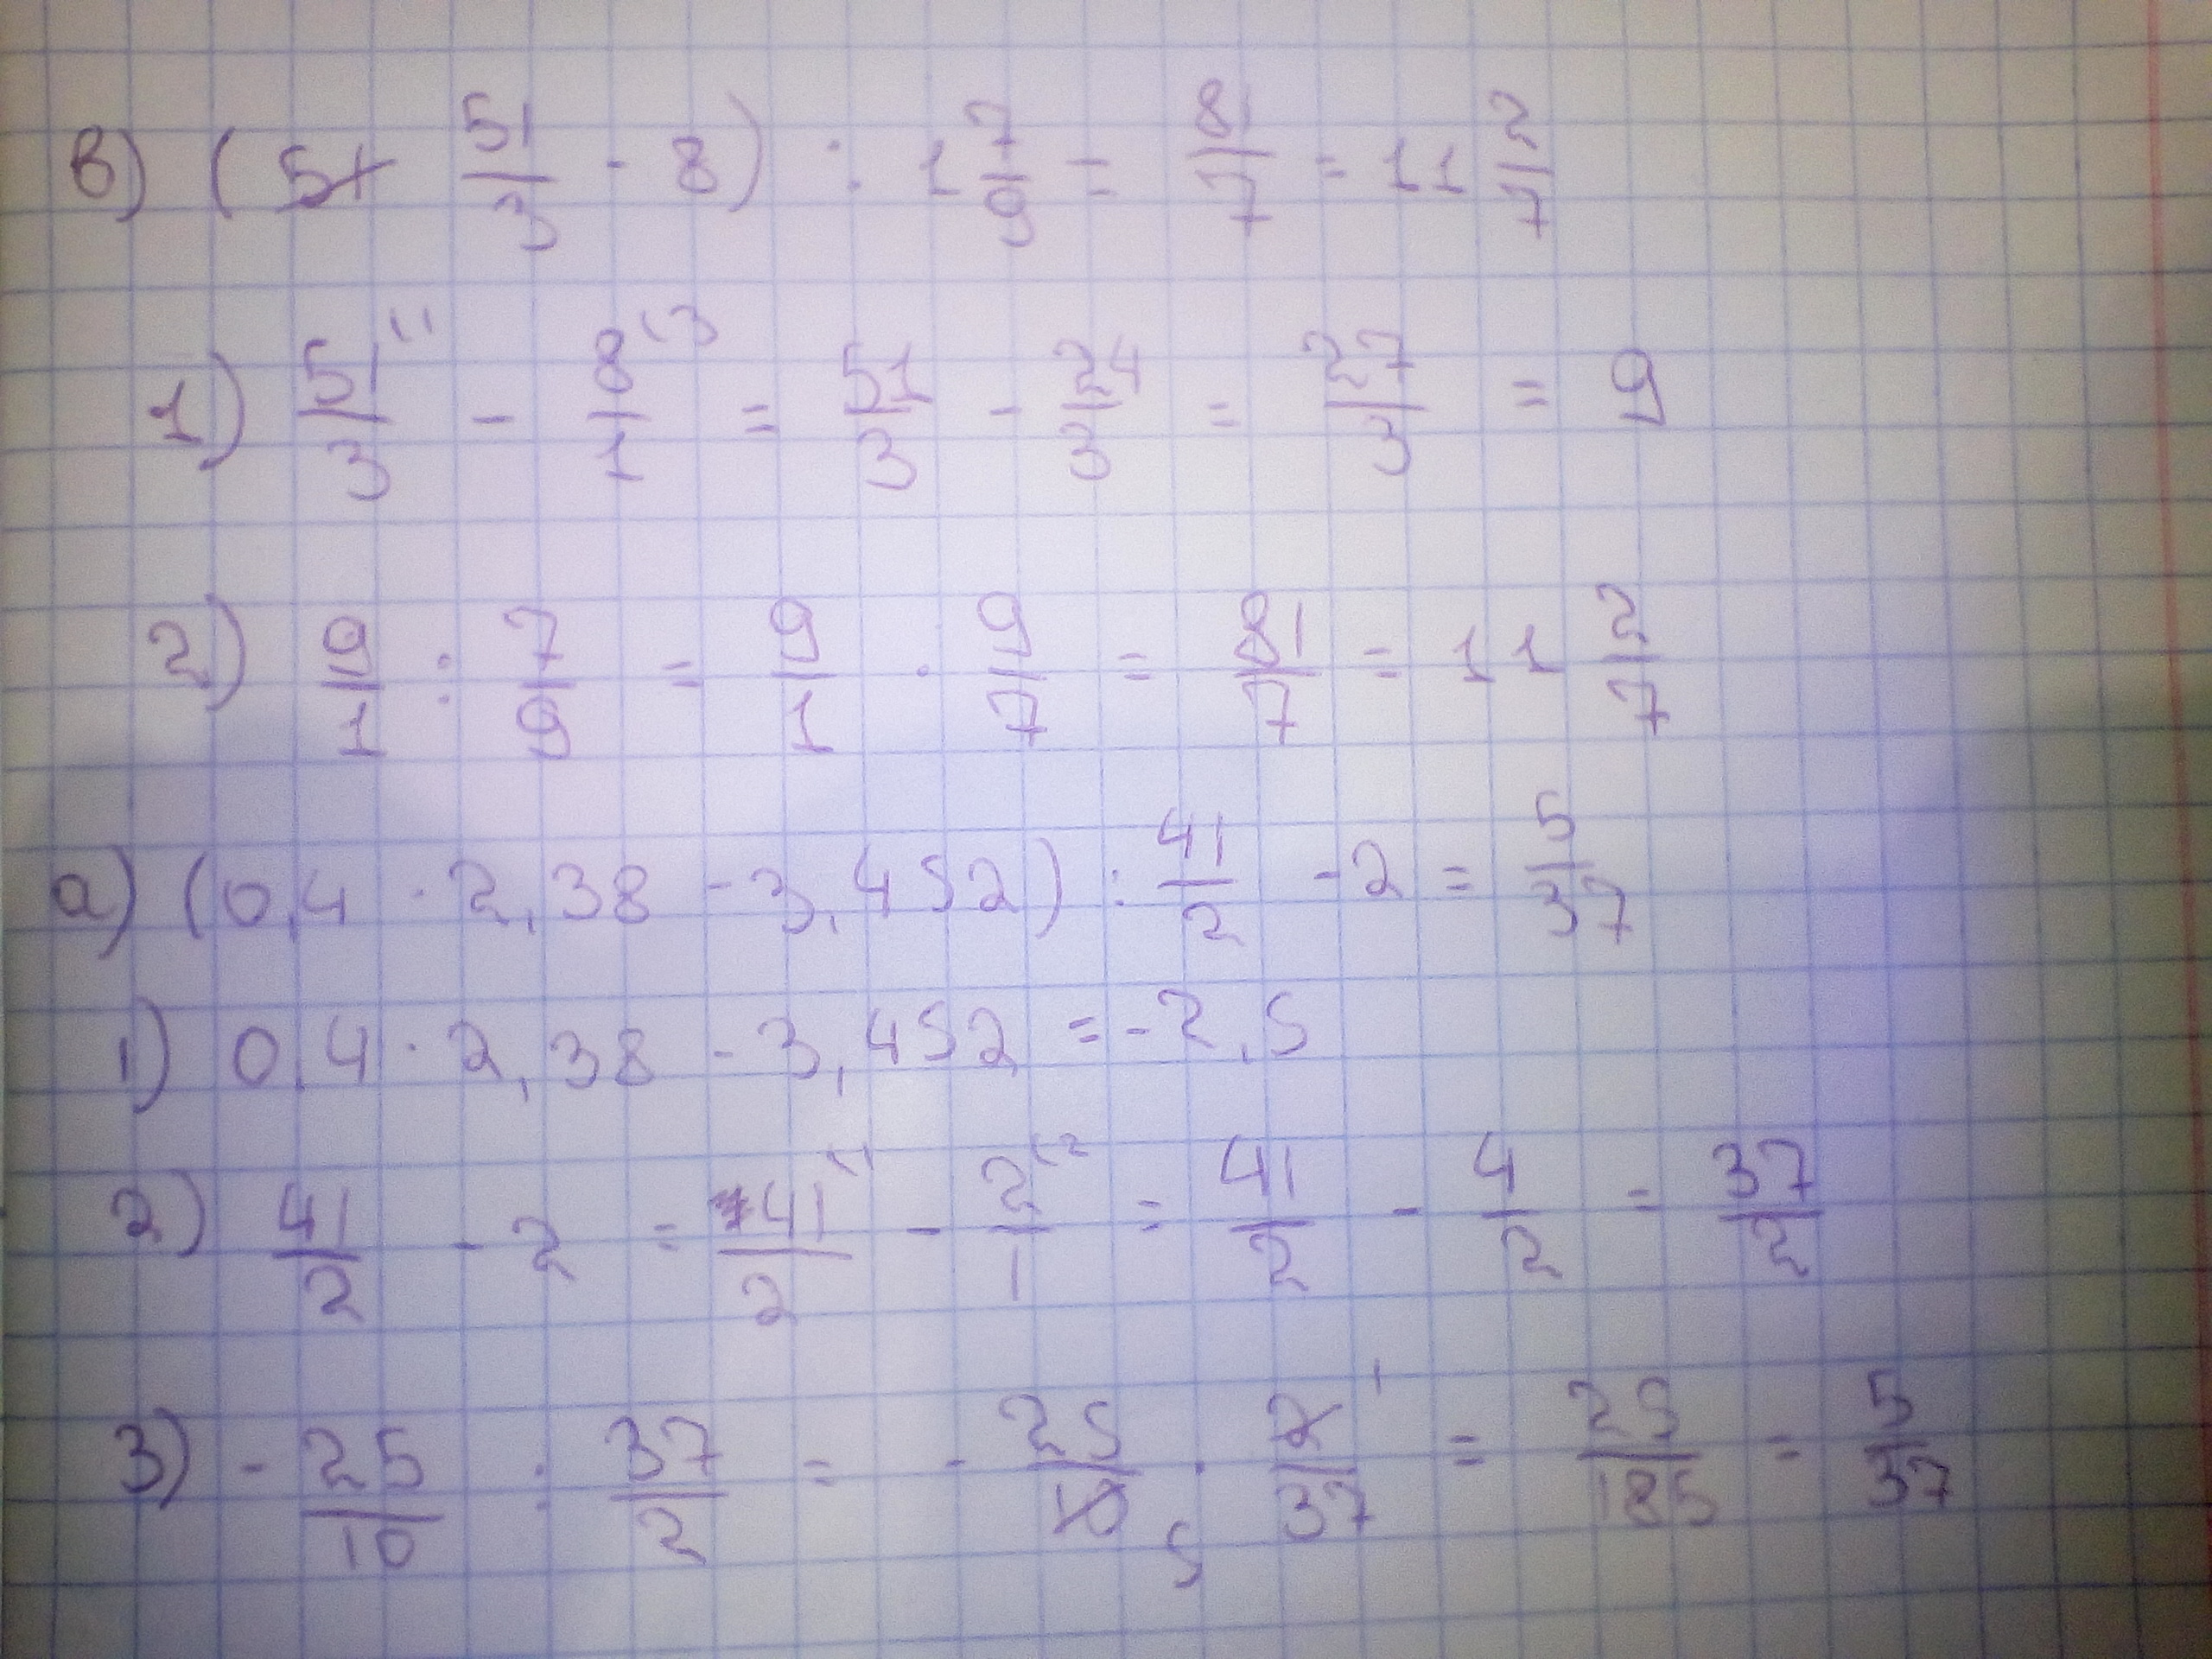 в) (5+ 51/3 - 8) : 1 7/9 = 81/7 = 11 2/7
1) 51/3 (1 - 8/1 (3 = 51/3 - 24/3 = 27/3 = 9
2) 9/1 : 7/9 = 9/1 · 9/7 = 81/7 = 11 2/7
а) (0,4 · 2,38 - 3,452) : 41/2 - 2 = 5/37
1) 0,4 · 2,38 - 3,452 = -2,5
2) 41/2 - 2 = 41/2 (1 - 2/1 (2 = 41/2 - 4/2 = 37/2
3) - 25/10 : 37/2 = - 25/10 5 · 2/37 1 = 25/185 = 5/37